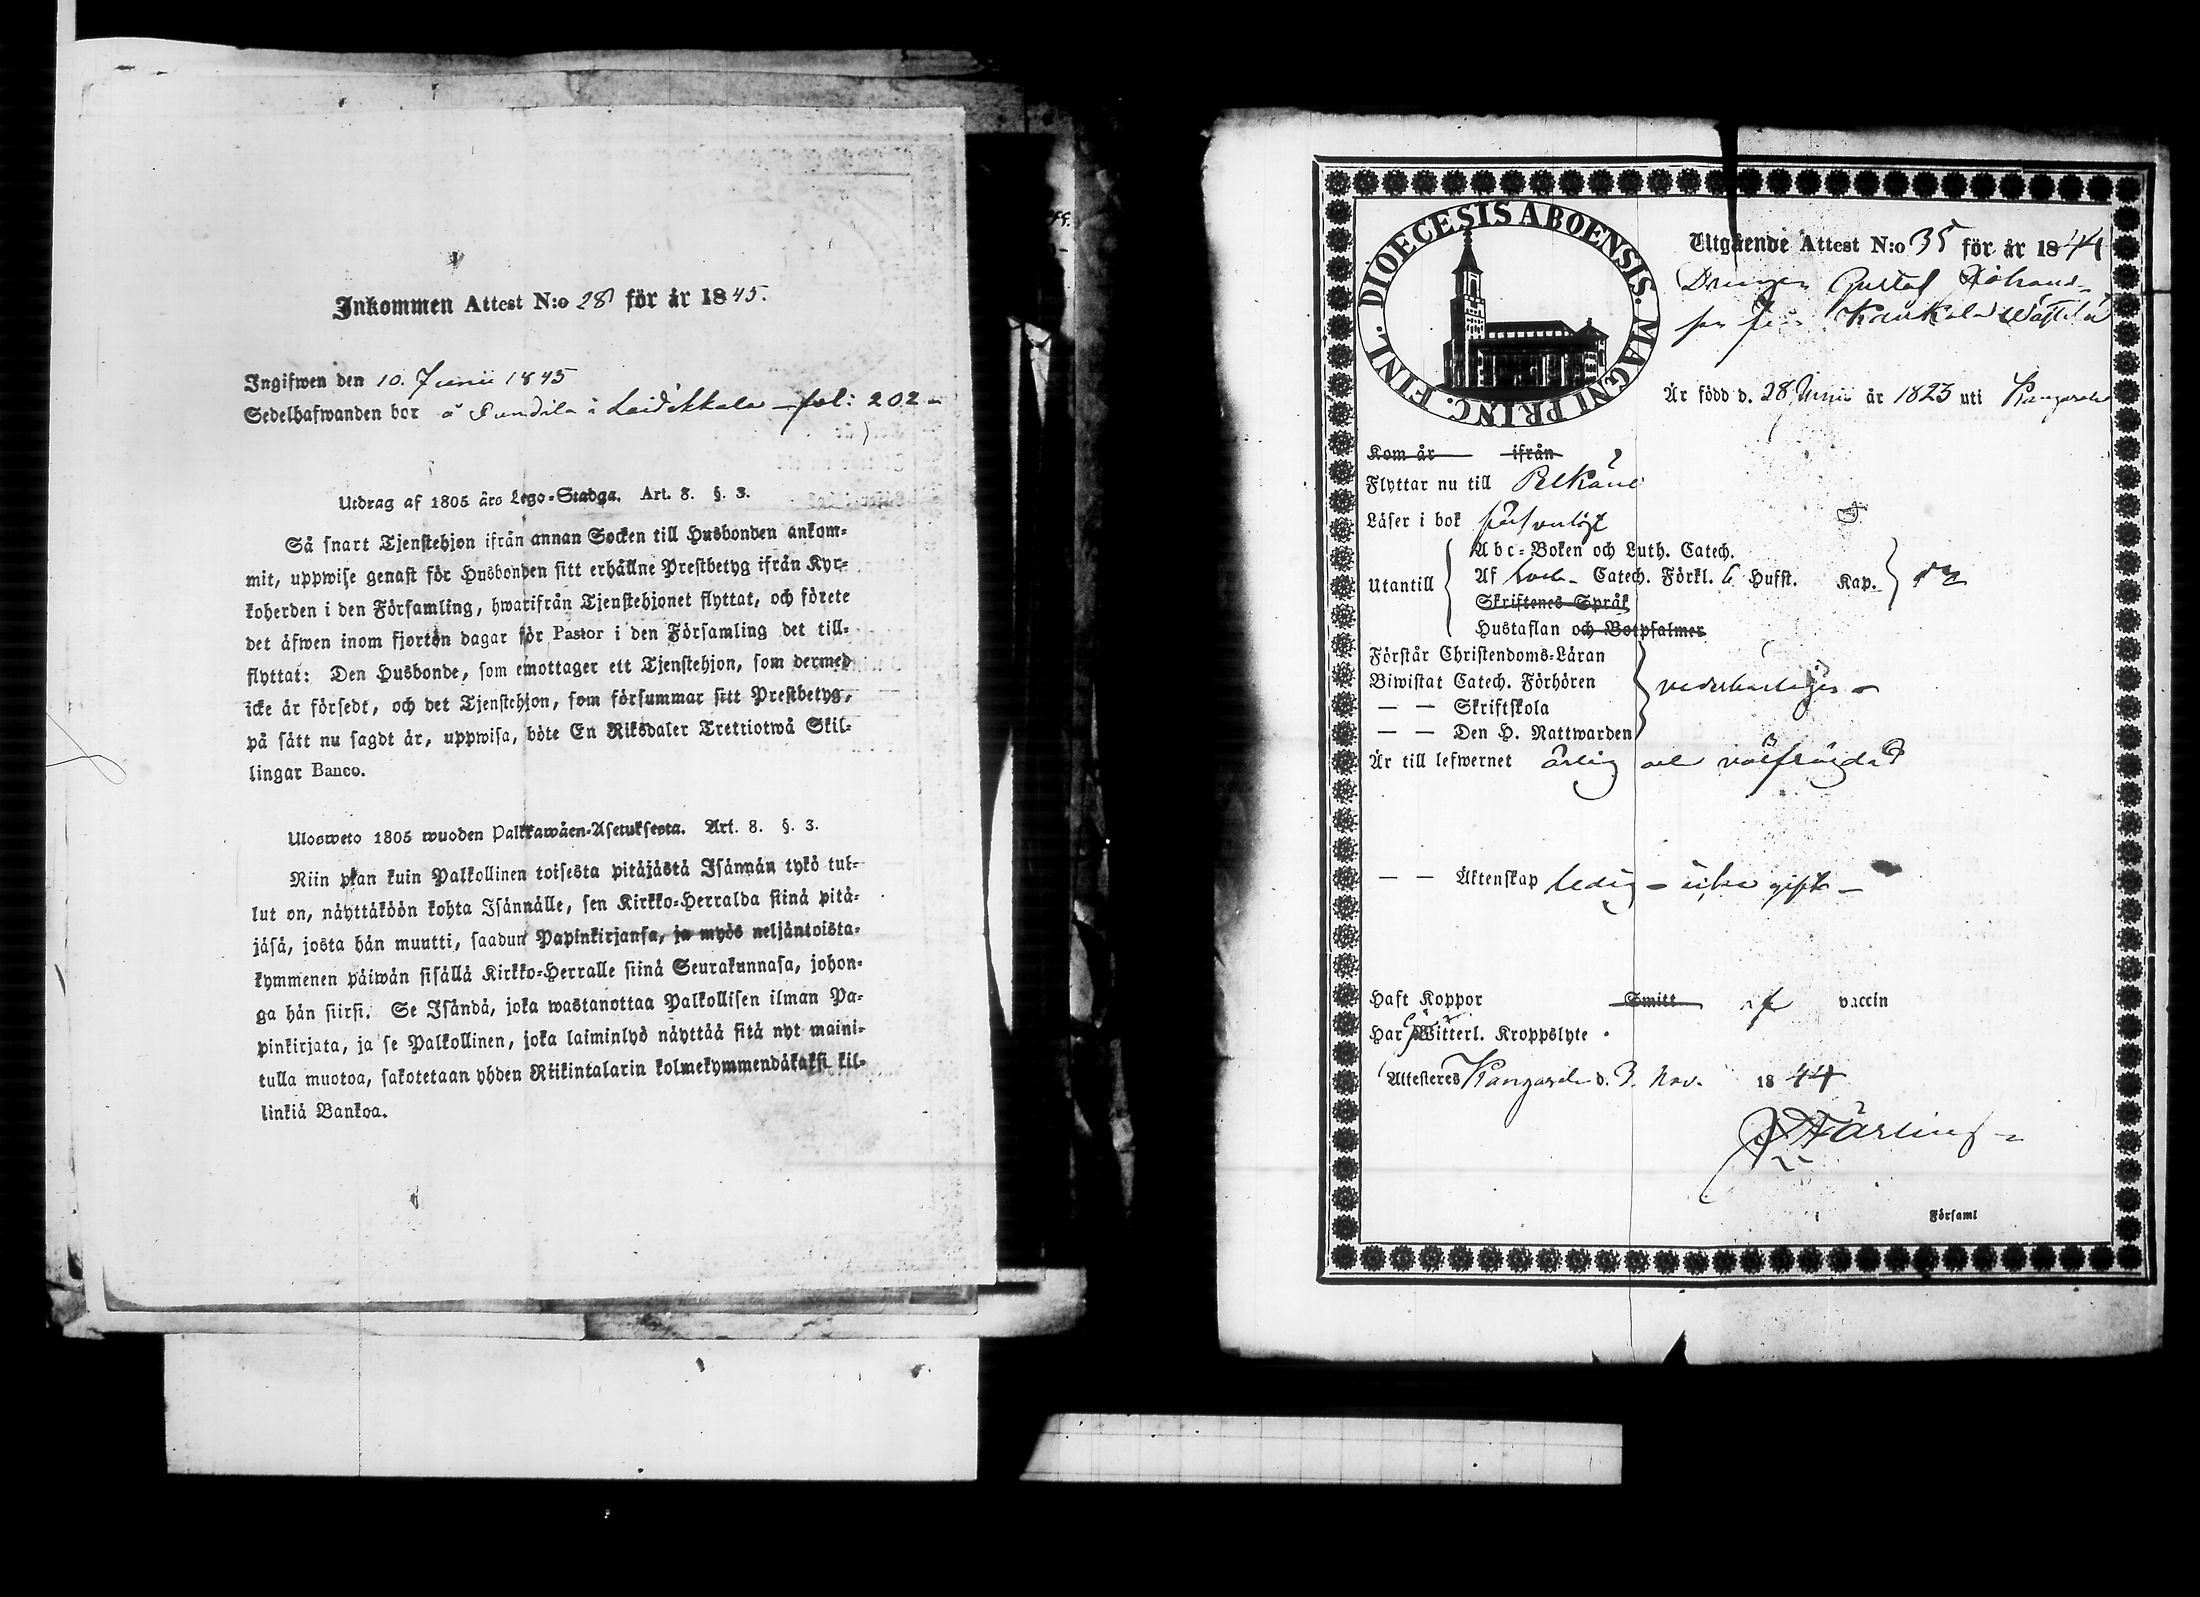 Inkommen Attest N:o 28 för år 1845.
Ingifwen den 10. Junii 1845
Sedelhafwanden bor å Pundila i Laidikkala – fol: 202 –
Utdrag af 1805 års Lego-Stadga. Art. 8. §. 3.
Så snart Tjenstehjon ifrån annan Socken till Husbonden ankom-
mit, uppwise genast för Husbonden sitt erhållne Prestbetyg ifrån Kyr-
koherden i den Församling, hwarifrån Tjenstehjonet flyttat, och förete
det äfwen inom fjorton dagar för Pastor i den Församling det till-
flyttat: Den Husbonde, som emottager ett Tjenstehjon, som dermed
icke är försedt, och det Tjenstehjon, som försummar sitt Prestbetyg,
på sätt nu sagdt är, uppwisa, böte En Riksdaler Trettiotwå Skil-
lingar Banco.
Ulosweto 1805 wuoden Palkkawäen-Asetuksesta. Art. 8. §. 3.
Niin pian kuin Palkollinen toisesta pitäjästä Isännän tykö tul-
lut on, näyttäköön kohta Isännälle, sen Kirkko-Herralda siinä pitä-
jäsä, josta hän muutti, saadun Papinkirjansa, ja myös neljäntoista-
kymmenen päiwän sisällä Kirkko-Herralle siinä Seurakunnasa, johon-
ga hän siirsi. Se Isändä, joka wastanottaa Palkollisen ilman Pa-
pinkirjata, ja se Palkollinen, joka laiminlyö näyttää sitä nyt maini-
tulla muotoa, sakotetaan yhden Riikintalarin kolmekymmendäkaksi kil-
linkiä Bankoa.
DIOECESIS ABOENSIS. MAGNI PRINC. FINL.
Utgående Attest N:o 35 för år 1844
Drengen Gustaf Johans-
son från Kaukala Wästilä
Är född d. 28 Junii år 1823 uti Kangasala
Kom år ifrån
Flyttar nu till Pelkäne
Läser i bok försvarligt
Utantill
Abc-Boken och Luth. Catech.
Af Catech. Förkl. 6 Hufst. Kap.
Skriftenes Språk
Hustaflan och Botpsalmer
Förstår Christendoms-Läran
Biwistat Catech. Förhören vederbörligen
— — Skriftskola
— — Den H. Nattwarden
Är till lefwernet ärlig och välfrägdad
— — Äktenskap ledig – icke gift –
Haft Koppor Smitt af vaccin
Har Witterl. Kroppslyte
Attesteres Kangasala d. 3. Nov. 1844
Församl